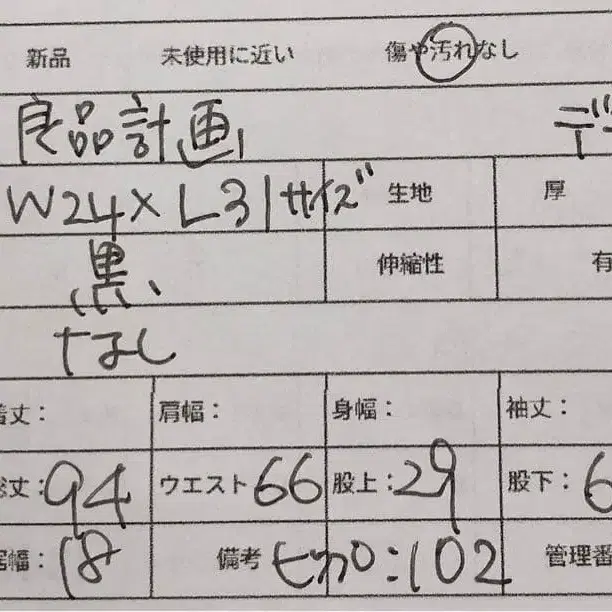 新品 未使用に近い 傷や汚れなし
良品計画 デ
W24×L31サイズ 生地 厚
黒 伸縮性 有
なし
着丈: 肩幅: 身幅: 袖丈:
総丈:94 ウエスト66 股上:29 股下:6
裾幅:18 備考 ヒップ:102 管理番